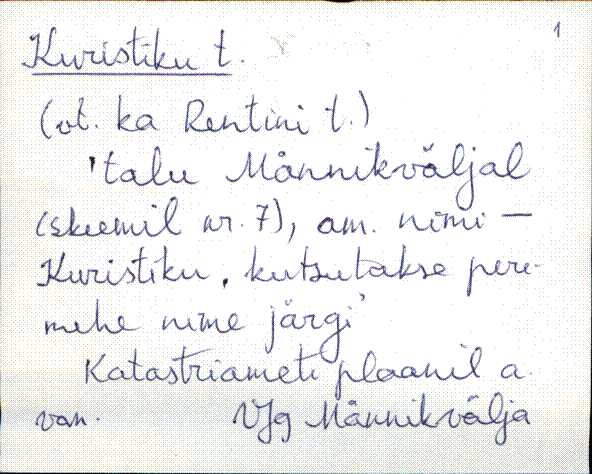 1
Kuristiku t.
(vt. ka Rentini t.)
'talu Männikväljal
(skeemil nr. 7), am. nimi —
Kuristiku, kutsutakse pere-
mehe nime järgi'
Katastriameti plaanil a.
van. VJg Männikvälja